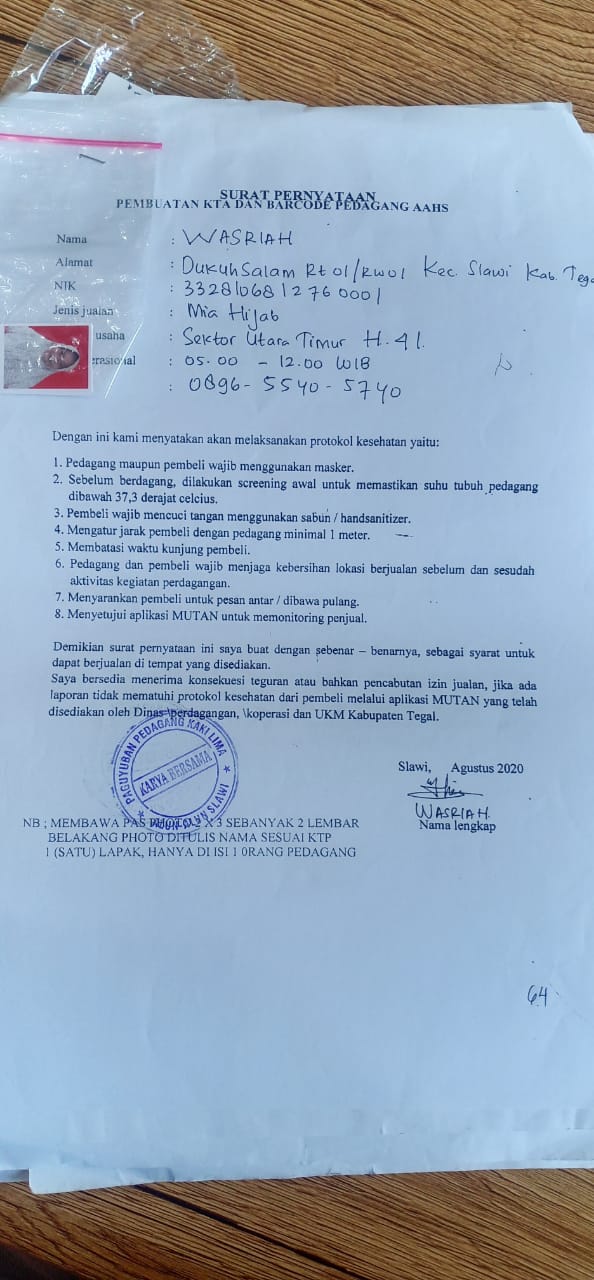 SURAT PERNYATAAN
PEMBUATAN KTA DAN BARCODE PEDAGANG AAHS
Nama : WASRIAH
Alamat : Dukuhsalam Rt 01/Rw01 Kec. Slawi Kab. Tega
NIK : 3328106812760001
Jenis jualan : Mia Hijab
usaha : Sektor Utara Timur H.41.
erasional : 05.00 - 12.00 WIB
: 0896-5540-5740
Dengan ini kami menyatakan akan melaksanakan protokol kesehatan yaitu:
1. Pedagang maupun pembeli wajib menggunakan masker.
2. Sebelum berdagang, dilakukan screening awal untuk memastikan suhu tubuh pedagang
dibawah 37,3 derajat celcius.
3. Pembeli wajib mencuci tangan menggunakan sabun / handsanitizer.
4. Mengatur jarak pembeli dengan pedagang minimal 1 meter.
5. Membatasi waktu kunjung pembeli.
6. Pedagang dan pembeli wajib menjaga kebersihan lokasi berjualan sebelum dan sesudah
aktivitas kegiatan perdagangan.
7. Menyarankan pembeli untuk pesan antar / dibawa pulang.
8. Menyetujui aplikasi MUTAN untuk memonitoring penjual.
Demikian surat pernyataan ini saya buat dengan sebenar – benarnya, sebagai syarat untuk
dapat berjualan di tempat yang disediakan.
Saya bersedia menerima konsekuesi teguran atau bahkan pencabutan izin jualan, jika ada
laporan tidak mematuhi protokol kesehatan dari pembeli melalui aplikasi MUTAN yang telah
disediakan oleh Dinas \perdagangan, \koperasi dan UKM Kabupaten Tegal.
PAGUYUBAN PEDAGANG KAKI LIMA
KARYA BERSAMA
ALUN-ALUN SLAWI
Slawi, Agustus 2020
WASRIAH.
Nama lengkap
NB ; MEMBAWA PAS PHOTO 2 X 3 SEBANYAK 2 LEMBAR
BELAKANG PHOTO DITULIS NAMA SESUAI KTP
1 (SATU) LAPAK, HANYA DI ISI 1 0RANG PEDAGANG
64